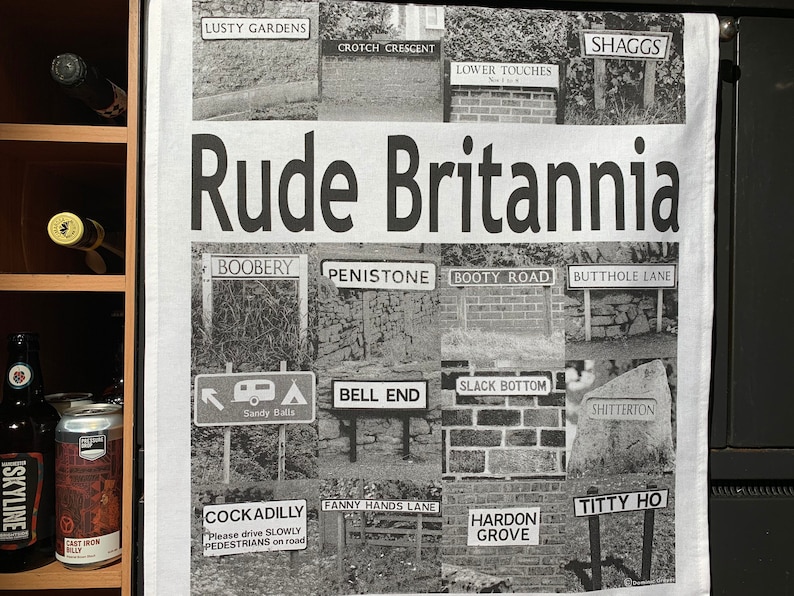 LUSTY GARDENS
CROTCH CRESCENT
LOWER TOUCHES
Nos 1 to 8
SHAGGS
Rude Britannia
BOOBERY
PENISTONE
BOOTY ROAD
BUTTHOLE LANE
Sandy Balls
BELL END
SLACK BOTTOM
SHITTERTON
COCKADILLY
Please drive SLOWLY
PEDESTRIANS on road
FANNY HANDS LANE
HARDON
GROVE
TITTY HO
©Dominic Greyer
PRESSURE
DROP
CAST IRON
BILLY
MANCHESTER
SKYLINE
BRIGHTSIDE